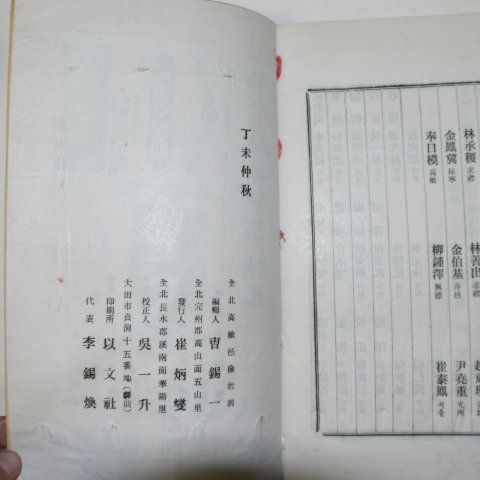 林承稷 求禮
林善由 求禮
金鳳冀 保寧
金伯基 井邑
尹堯重 光州
奉日模 高敞
柳鍾澤 興德
崔泰鳳 서울
丁未仲秋
全北高敞邑
編輯人 曺錫一
全北完州郡高山面五山里
發行人 崔炳燮
全北長水郡溪南面華陽里
校正人 吳一升
大田市貞洞十五番地(驛前)
印刷所 以文社
代表 李錫煥